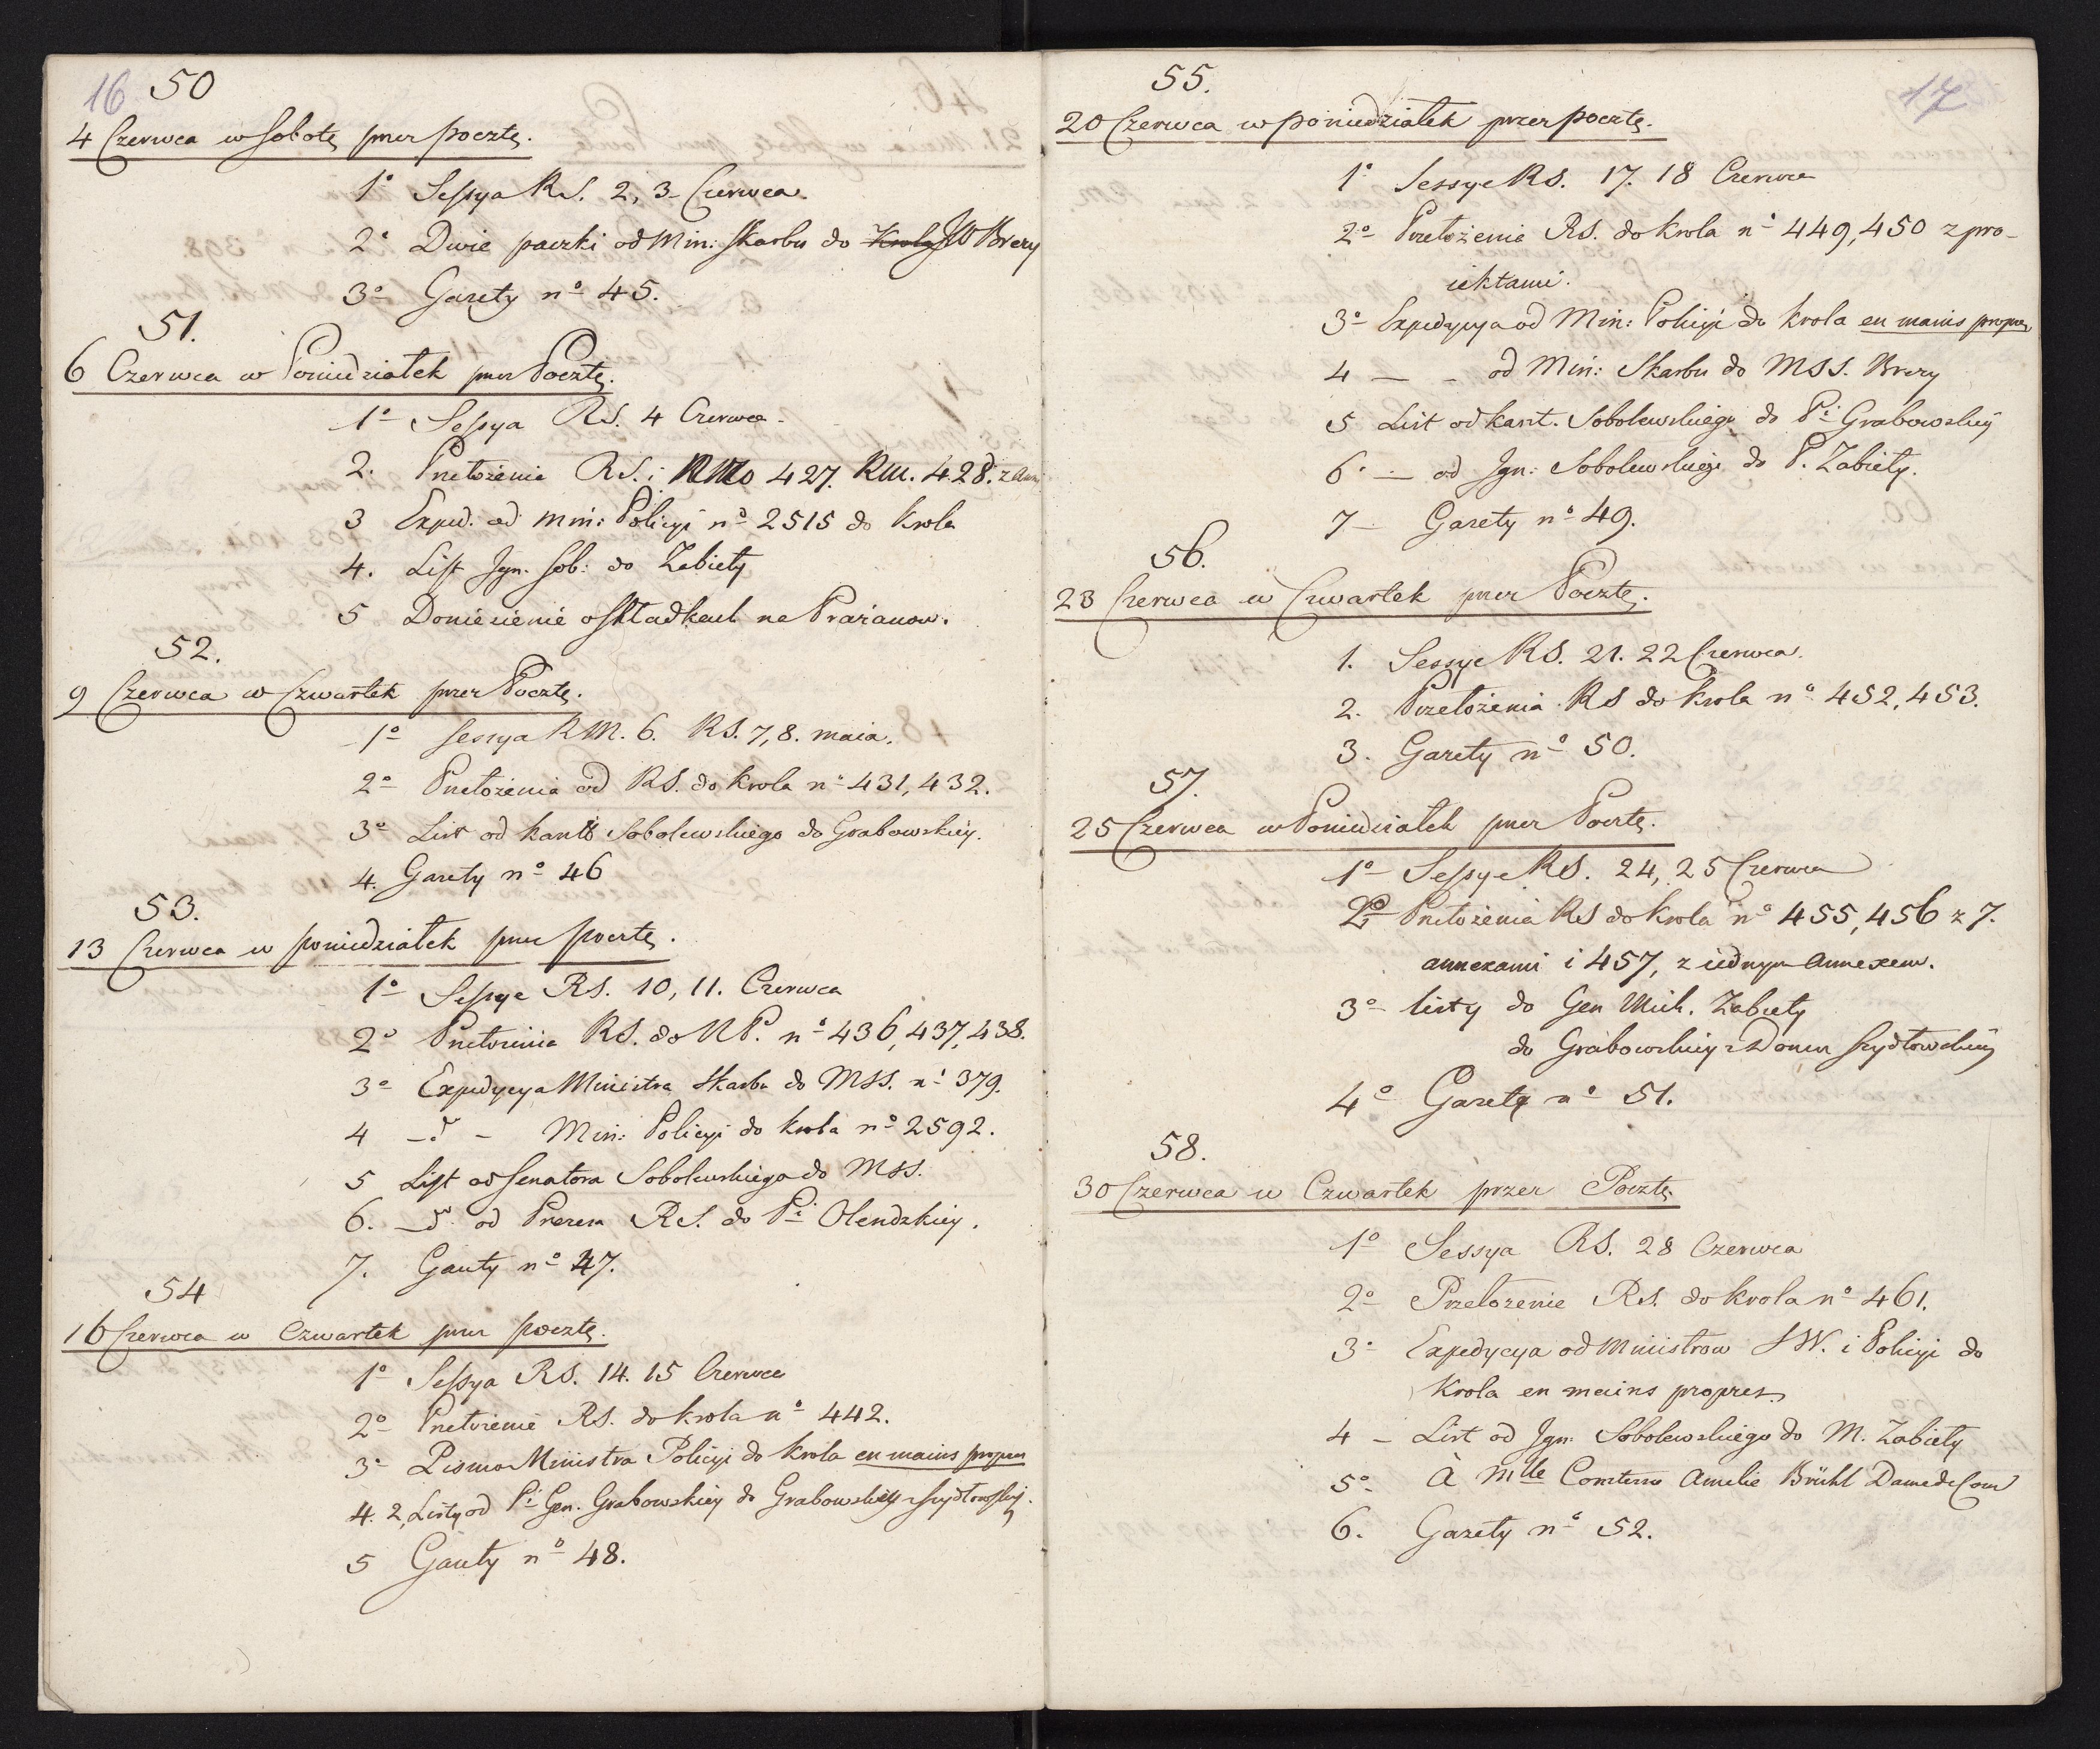 16 50
4 Czerwca w Sobotę przez pocztę.
1° Sessya RS. 2, 3 Czerwca.
2° Dwie paczki od Min: Skarbu do Krola JW Brezy
3° Gazety n° 45.
51.
6 Czerwca w Poniedziałek przez Pocztę.
1° Sessya RS. 4 Czerwca.
2. Przełożenie RS. i 427. Rm. 428.
3 Exped. od Min: Policyi n° 2515 do Krola
4. List Ign. Sob: do Zabiełły
5 Doniesienie o składkach na Prażanow.
52.
9 Czerwca w Czwartek przez Pocztę.
1° Sessya RM. 6. RS. 7, 8. maia.
2° Przełożenia od RS. do Krola n° 431, 432.
3° List od Sobolewskiego do Grabowskiey.
4. Gazety n° 46
53.
13 Czerwca w poniedziałek przez pocztę.
1° Sessye RS. 10, 11. Czerwca
2° Przełożenia RS. do NP. n° 436, 437, 438.
3° Expedycya Ministra Skarbu do MSS. n° 379.
4 — d° — Min: Policyi do Krola n° 2592.
5 List od Senatora Sobolewskiego do MSS.
6. — d° od Prezesa RS. do Pi Olendzkiey.
7. Gazety n° 47.
54
16 Czerwca w Czwartek przez pocztę.
1° Sessya RS. 14. 15 Czerwca
2° Przełożenie RS. do Krola n° 442.
3° Pismo Ministra Policyi do Krola en mains propres
4. 2, Listy od Pi Gen. Grabowskiey do Grabowskiey i Szydłowskiey.
5 Gazety n° 48.
17
55.
20 Czerwca w poniedziałek przez pocztę.
1° Sessye RS. 17. 18 Czerwca
2° Przełożenia RS. do Krola n° 449, 450 z pro-
iektami.
3° Expedycya od Min: Policyi do Krola en mains propres
4 — — od Min: Skarbu do MSS. Brezy
5 List od Kaszt. Sobolewskiego do Pi Grabowskiey
6. — od Ign: Sobolewskiego do P. Zabiełły.
7 — Gazety n° 49.
56.
23 Czerwca w Czwartek przez Pocztę.
1. Sessye RS. 21. 22 Czerwca.
2. Przełożenia RS do Krola n° 452, 453.
3. Gazety n° 50.
57.
25 Czerwca w Poniedziałek przez Pocztę.
1° Sessye RS. 24, 25 Czerwca
2° Przełożenia RS do Krola n° 455, 456 z 7.
annexami i 457, z iednym Annexem.
3° listy do Gen Mich. Zabiełły
do Grabowskiey z Domu Szydłowskiey
4° Gazety n° 51.
58.
30 Czerwca w Czwartek przez Pocztę
1° Sessya RS. 28 Czerwca
2° Przełożenie RS. do Krola n° 461.
3° Expedycya od Ministrow SW. i Policyi do
Krola en mains propres
4 — List od Ign: Sobolewskiego do M. Zabiełły
5° A Mlle Comtesse Amelie Brühl Dame de Com
6. Gazety n° 52.